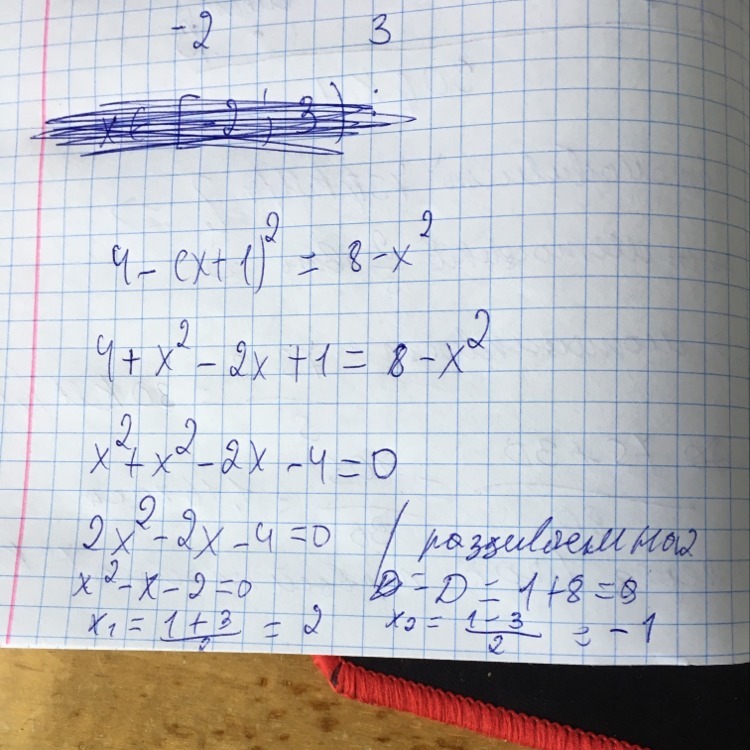 -2 3
x ∈ [-2; 3)
4 - (x+1)² = 8 - x²
4 + x² - 2x + 1 = 8 - x²
x² + x² - 2x - 4 = 0
2x² - 2x - 4 = 0 / на 2
x² - x - 2 = 0 D = 1 + 8 = 9
x₁ = (1+3)/2 = 2 x₂ = (1-3)/2 = -1